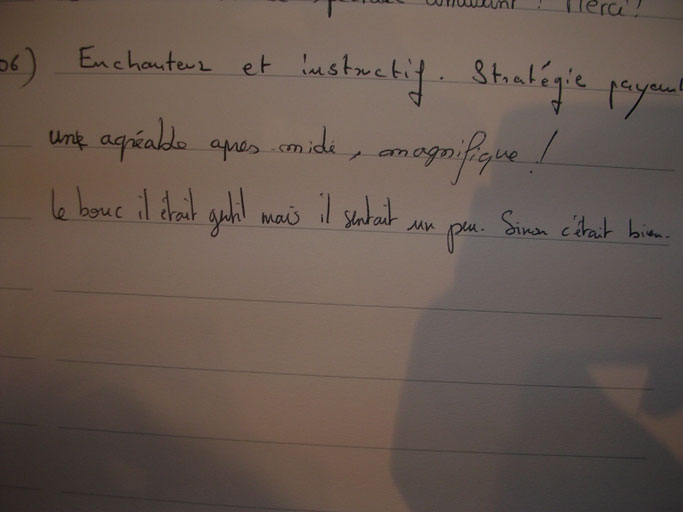 ! Merci!
06) Enchanteur et instructif. Stratégie payant
une agréable apres midi, magnifique !
le bouc il était gentil mais il sentait un peu. Sinon c'était bien.